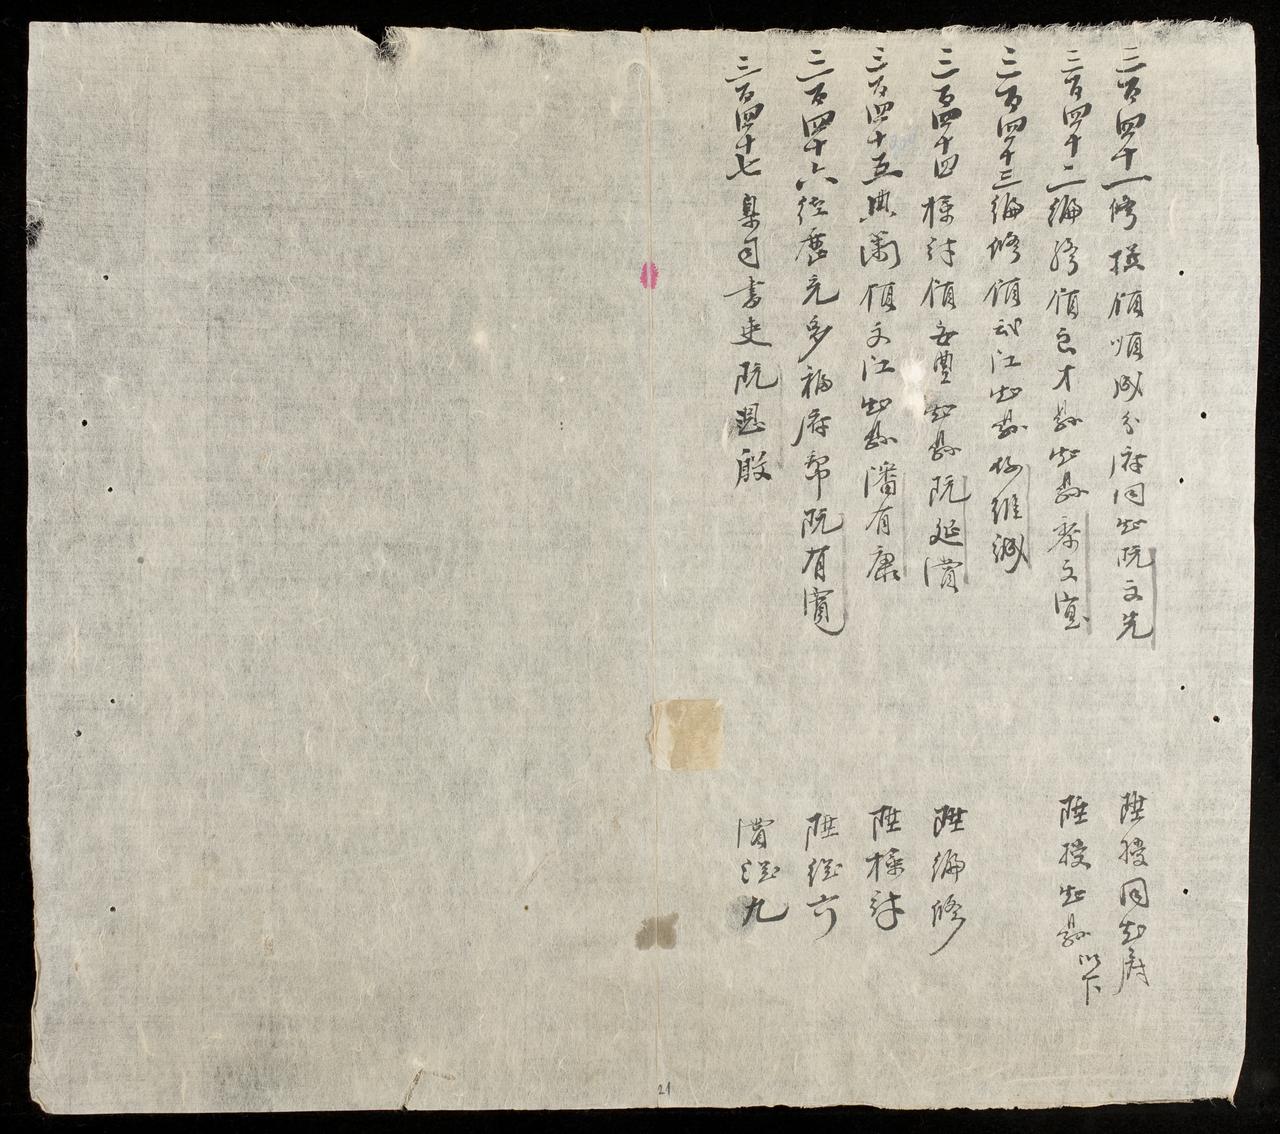 三百四十一修撰領順成分府同知阮文先
陞授同知府
三百四十二編修領良才縣知縣黎文宜
陞授知縣以下
三百四十三編修領武江知縣 維
三百四十四檢討領安豐知縣阮廷賞
陞編修
三百四十五典簿領文江知縣潘有康
陞檢討
三百四十六從 充多福府幫阮有寬
陞從六
三百四十七臬司書吏阮思殷
賞從九
21